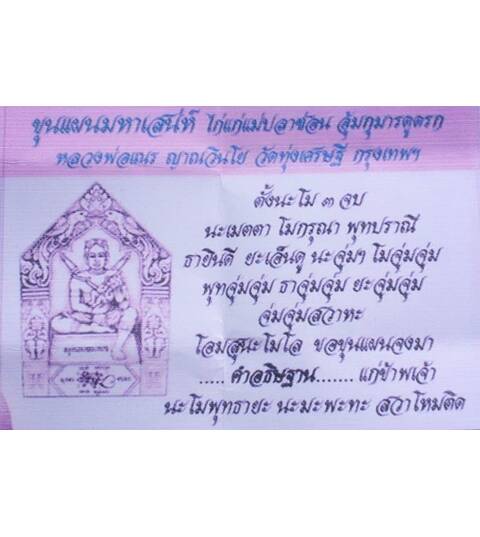 ขุนแผนมหาเสน่ห์ ไก่แก่แม่ปลาช่อน อุ้มกุมารดูดรก
หลวงพ่อแถร ญาณวินโย วัดทุ่งเศรษฐี กรุงเทพฯ
ตั้งนะโม ๓ จบ
นะเมตตา โมกรุณา พุทปราณี
ธายินดี ยะเอ็นดู นะจุ่มฯ โมจุ่มจุ่ม
พุทจุ่มจุ่ม ธาจุ่มจุ่ม ยะจุ่มจุ่ม
จ่มจุ่มสวาหะ
โอมสุนะโมโล ขอขุนแผนจงมา
..... คำอธิษฐาน....... แก่ข้าพเจ้า
นะโมพุทธายะ นะมะพะทะ สวาโหมติด